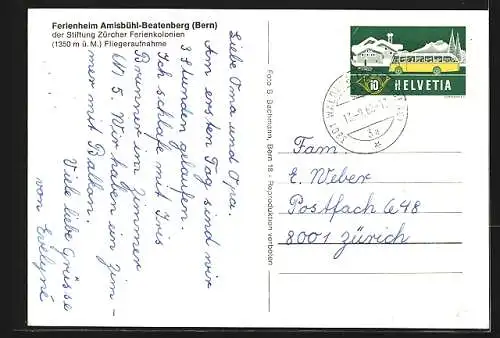 Ferienheim Amisbühl-Beatenberg (Bern)
der Stiftung Zürcher Ferienkolonien
(1350 m ü. M.) Fliegeraufnahme
Liebe Oma und Opa.
Am ersten Tag sind wir
3 Stunden gelaufen.
Ich schlafe mit Iris
Brunner im Zimmer
N 5. Wir haben ein Zim-
mer mit Balkon.
Viele liebe Grüsse
von Evelyne
Foto S. Bachmann, Bern 18 - Reproduktion verboten
10
HELVETIA
Fam.
E. Weber
Postfach 648
8001 Zürich